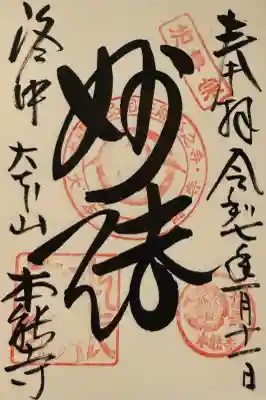 奉拝 令和七年一月十一日
妙法
洛中 大本山 本能寺